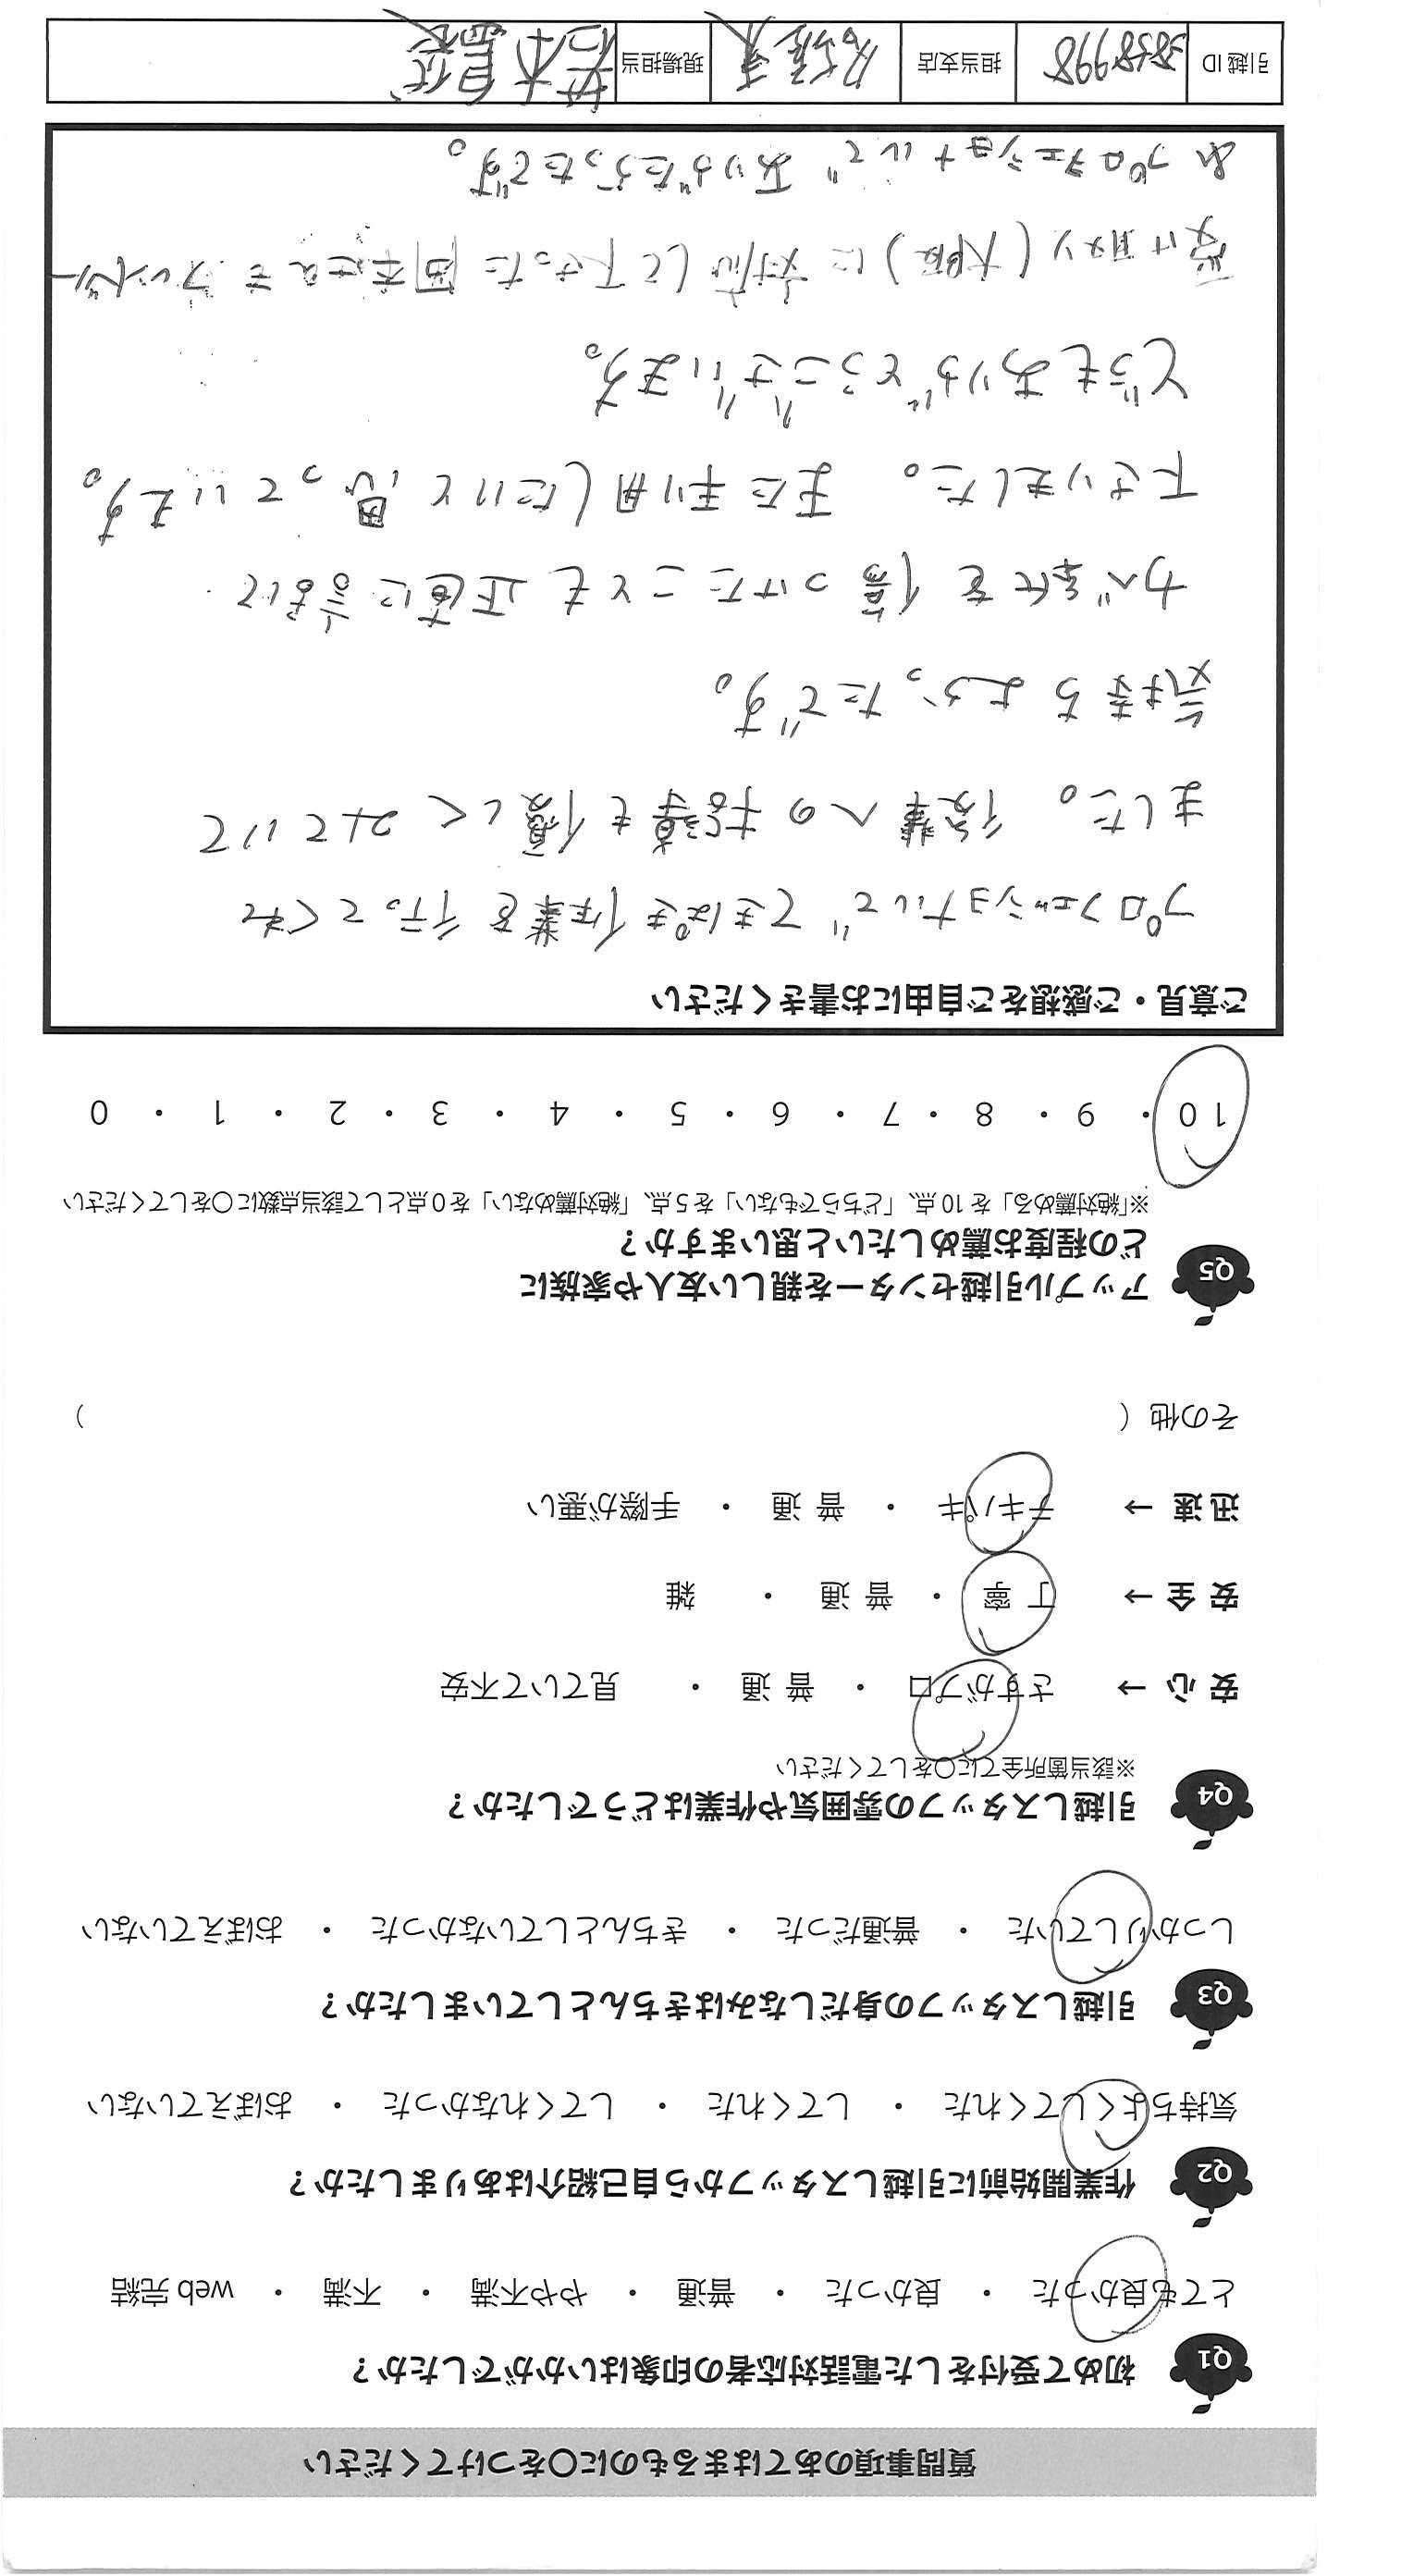 質問事項のあてはまるものに〇をつけてください
Q1 初めて受付をした電話対応者の印象はいかがでしたか？
とても良かった ・ 良かった ・ 普通 ・ やや不満 ・ 不満 ・ web 完結
Q2 作業開始前に引越しスタッフから自己紹介はありましたか？
気持ちよくしてくれた ・ してくれた ・ してくれなかった ・ おぼえていない
Q3 引越しスタッフの身だしなみはきちんとしていましたか？
しっかりしていた ・ 普通だった ・ きちんとしていなかった ・ おぼえていない
Q4 引越しスタッフの雰囲気や作業はどうでしたか？
※該当箇所全てに〇をしてください
安 心 → さすがプロ ・ 普 通 ・ 見ていて不安
安 全 → 丁 寧 ・ 普 通 ・ 雑
迅 速 → テキパキ ・ 普 通 ・ 手際が悪い
その他 ( )
Q5 アップル引越センターを親しい友人や家族に
どの程度お薦めしたいと思いますか？
※「絶対薦める」を 10 点、「どちらでもない」を 5 点、「絶対薦めない」を 0 点として該当点数に〇をしてください
10 ・ 9 ・ 8 ・ 7 ・ 6 ・ 5 ・ 4 ・ 3 ・ 2 ・ 1 ・ 0
ご意見・ご感想をご自由にお書きください
プロフェショナルで てきぱき作業を行ってくれ
ました。後輩への指導も優しく みていて
気持ち よかったです。
カベ等を傷つけたことも正直に言って
下さりました。また利用したいと思っています。
どうもありがとうございます。
受け取り(大阪)に対応して下さった岡本さんもフレンドリー
& プロフェショナルで ありがたかったです。
引越 ID 3858998 担当支店 現場担当